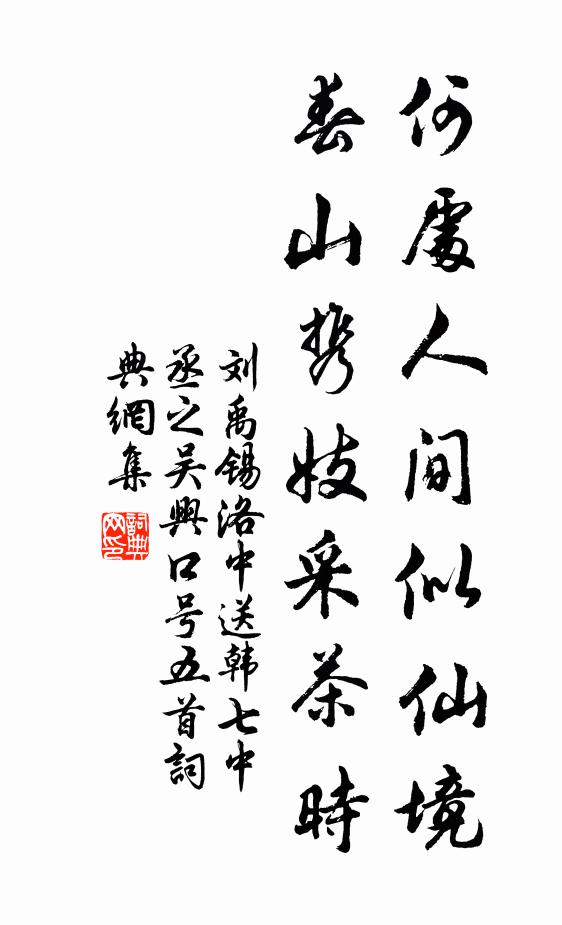 何處人间似仙境
春山携妓采茶時
刘禹锡洛中送韩七中
丞之吴興口号五首詞
典網集
詞典
网印